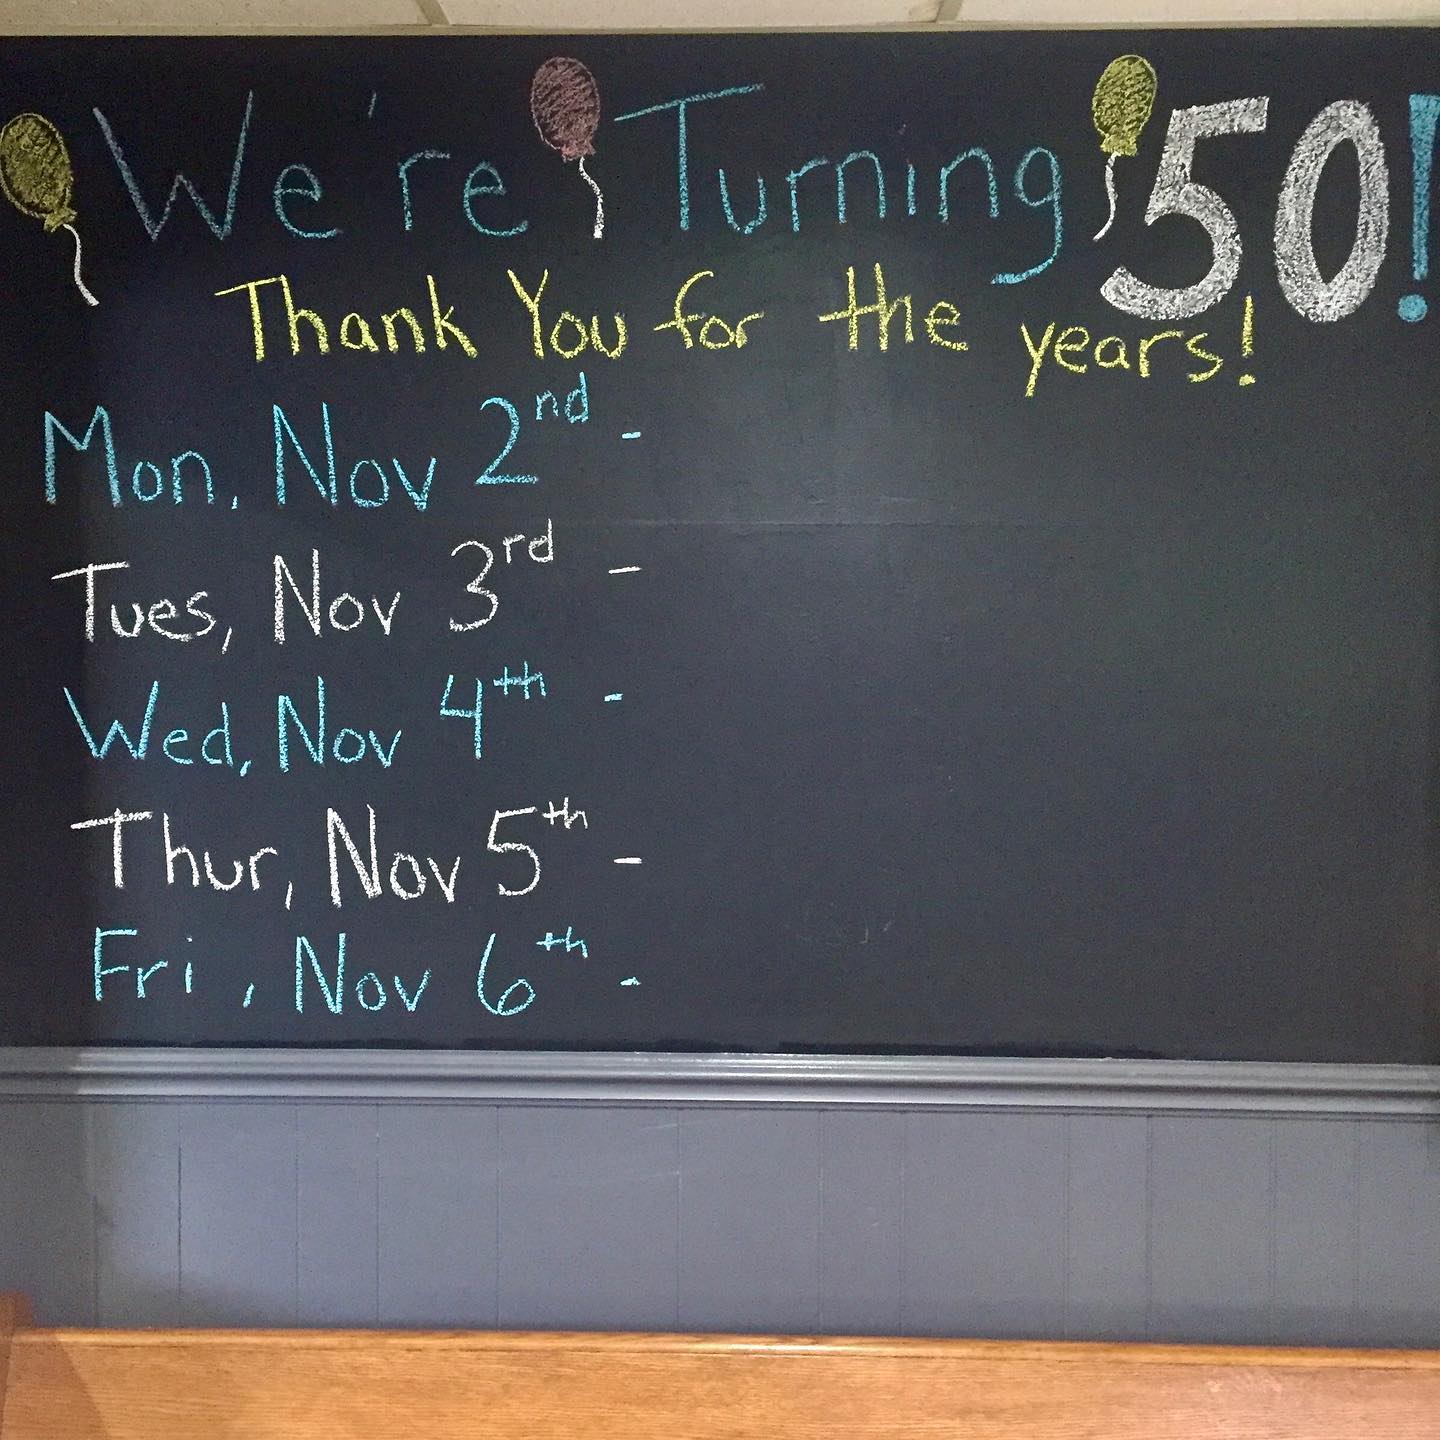 We're Turning 50!
Thank You for the years!
Mon, Nov 2nd -
Tues, Nov 3rd -
Wed, Nov 4th -
Thur, Nov 5th -
Fri, Nov 6th -